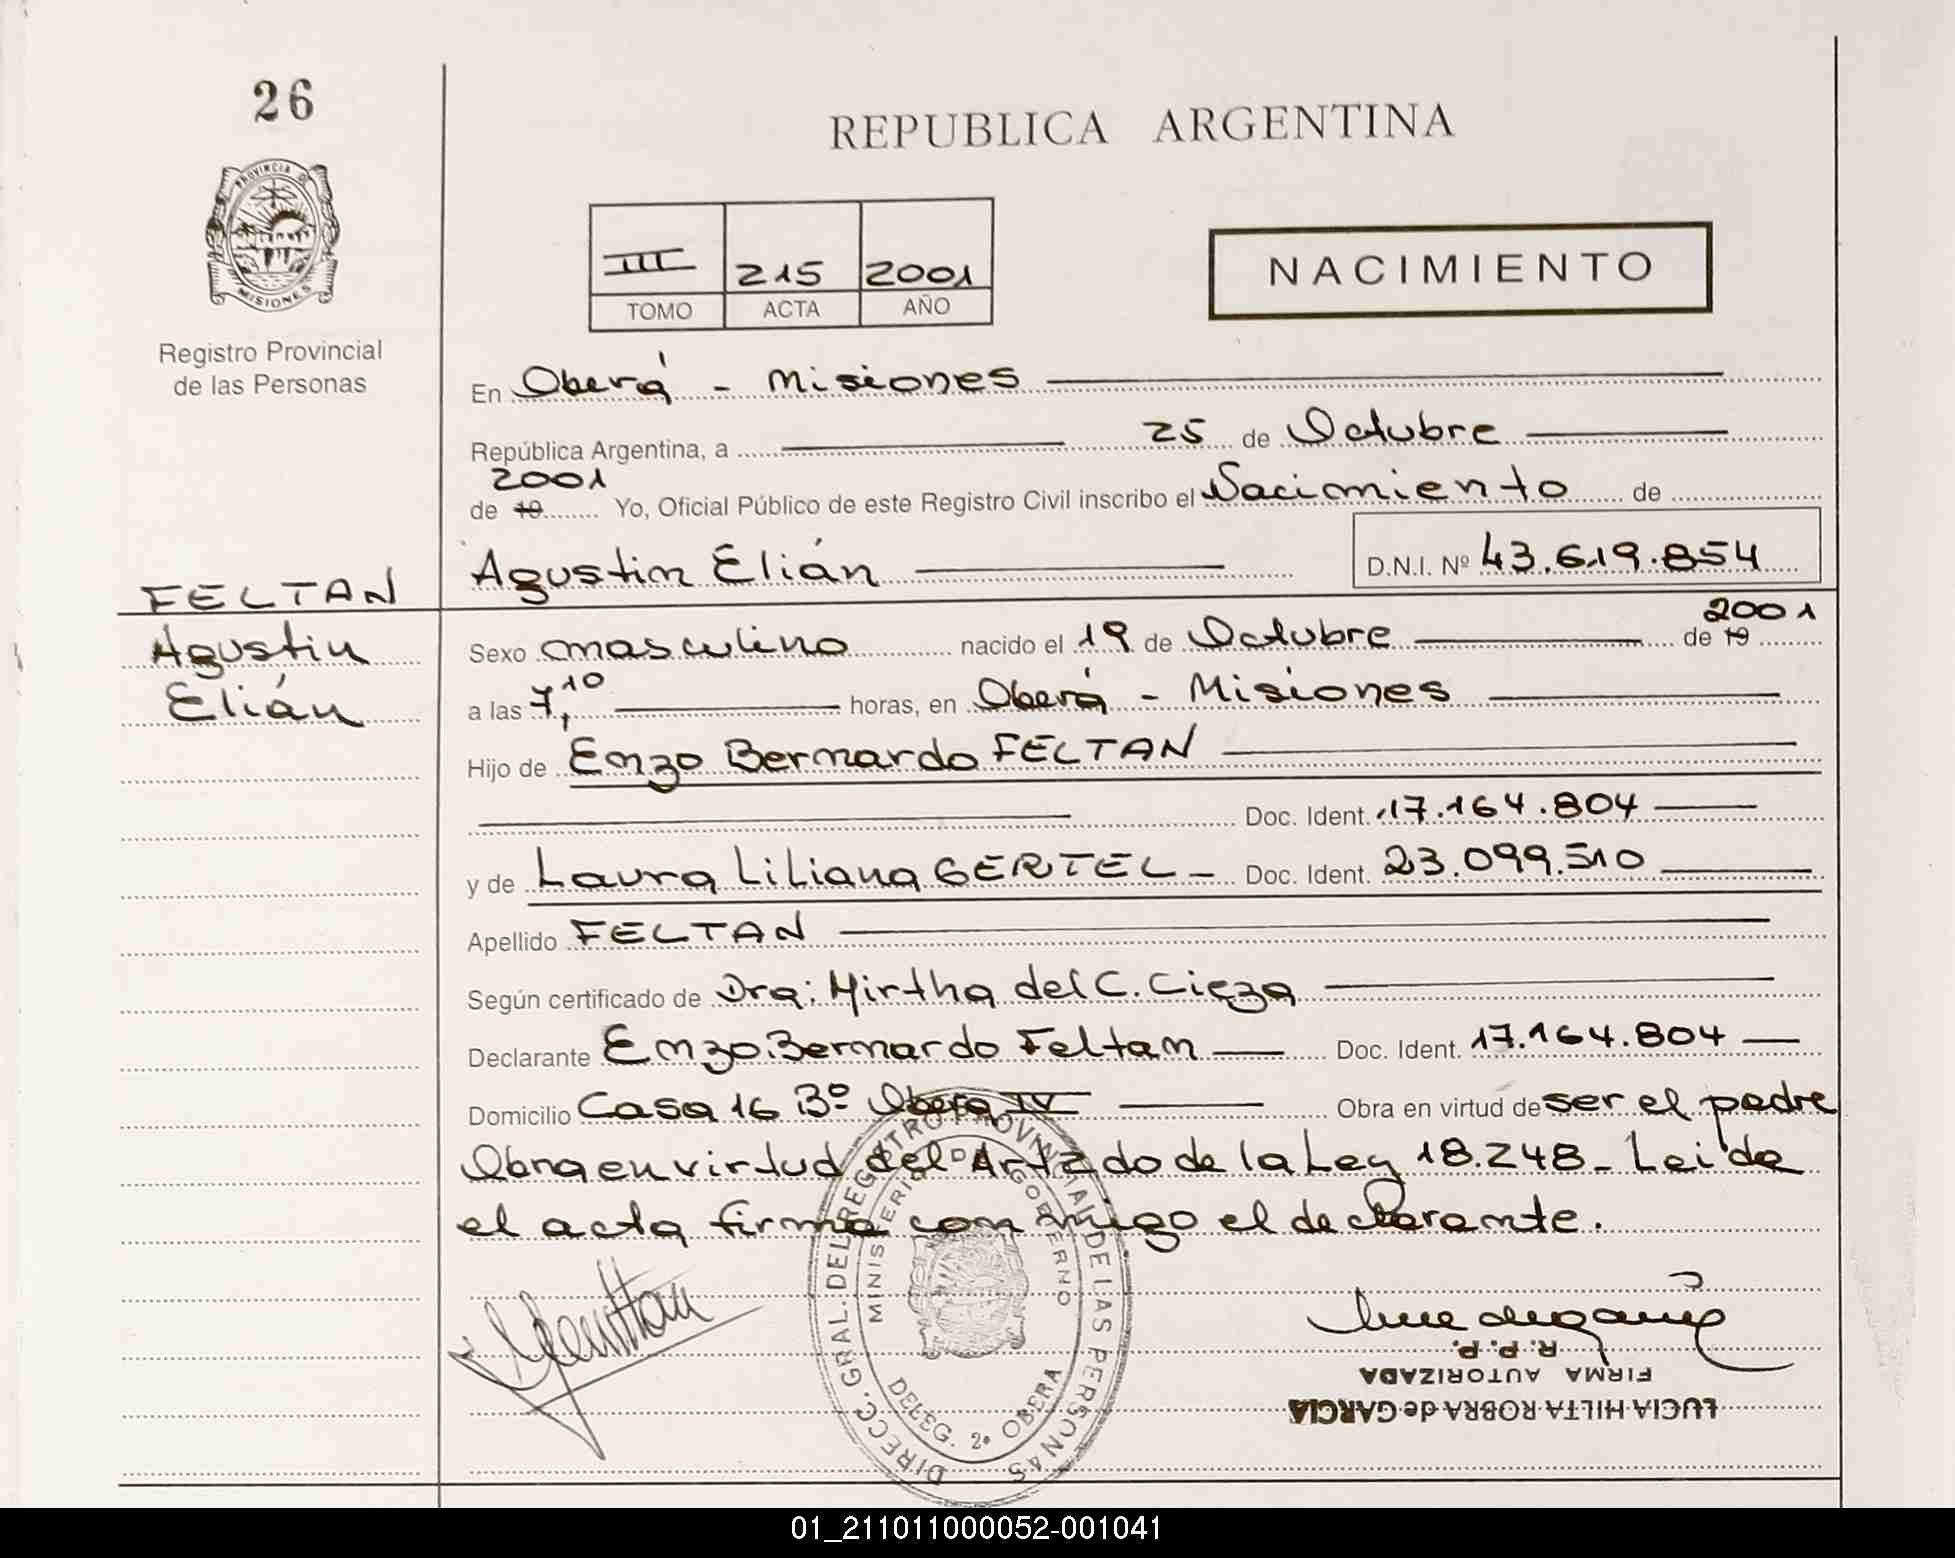 26
REPUBLICA ARGENTINA
PROVINCIA DE
MISIONES
III 215 2001
TOMO ACTA AÑO
NACIMIENTO
Registro Provincial
de las Personas
En Oberá - Misiones
República Argentina, a 25 de Octubre
2001
de 19 Yo, Oficial Público de este Registro Civil inscribo el Nacimiento de
Agustin Elián D.N.I. Nº 43.619.854
FELTAN
Agustin
Elián
2001
Sexo masculino nacido el 19 de Octubre de 19
a las 7,10 horas, en Oberá - Misiones
Hijo de Enzo Bernardo FELTAN
Doc. Ident. 17.164.804
y de Laura Liliana GERTEL - Doc. Ident. 23.099.510
Apellido FELTAN
Según certificado de Dra: Mirtha del C. Cieza
Declarante Enzo Bernardo Feltan Doc. Ident. 17.164.804
Domicilio Casa 16 Bº Oberá IV Obra en virtud de ser el padre
Obra en virtud del Art 2do de la Ley 18.248 - Leida
el acta firma con migo el declarante.
DIRECC. GRAL. DEL REGISTRO PROVINCIAL DE LAS PERSONAS
MINISTERIO DE GOBIERNO
DELEG. 2ª OBERA
R. P. P.
FIRMA AUTORIZADA
LUCIA HILTA ROBRA de GARCIA
01_211011000052-001041